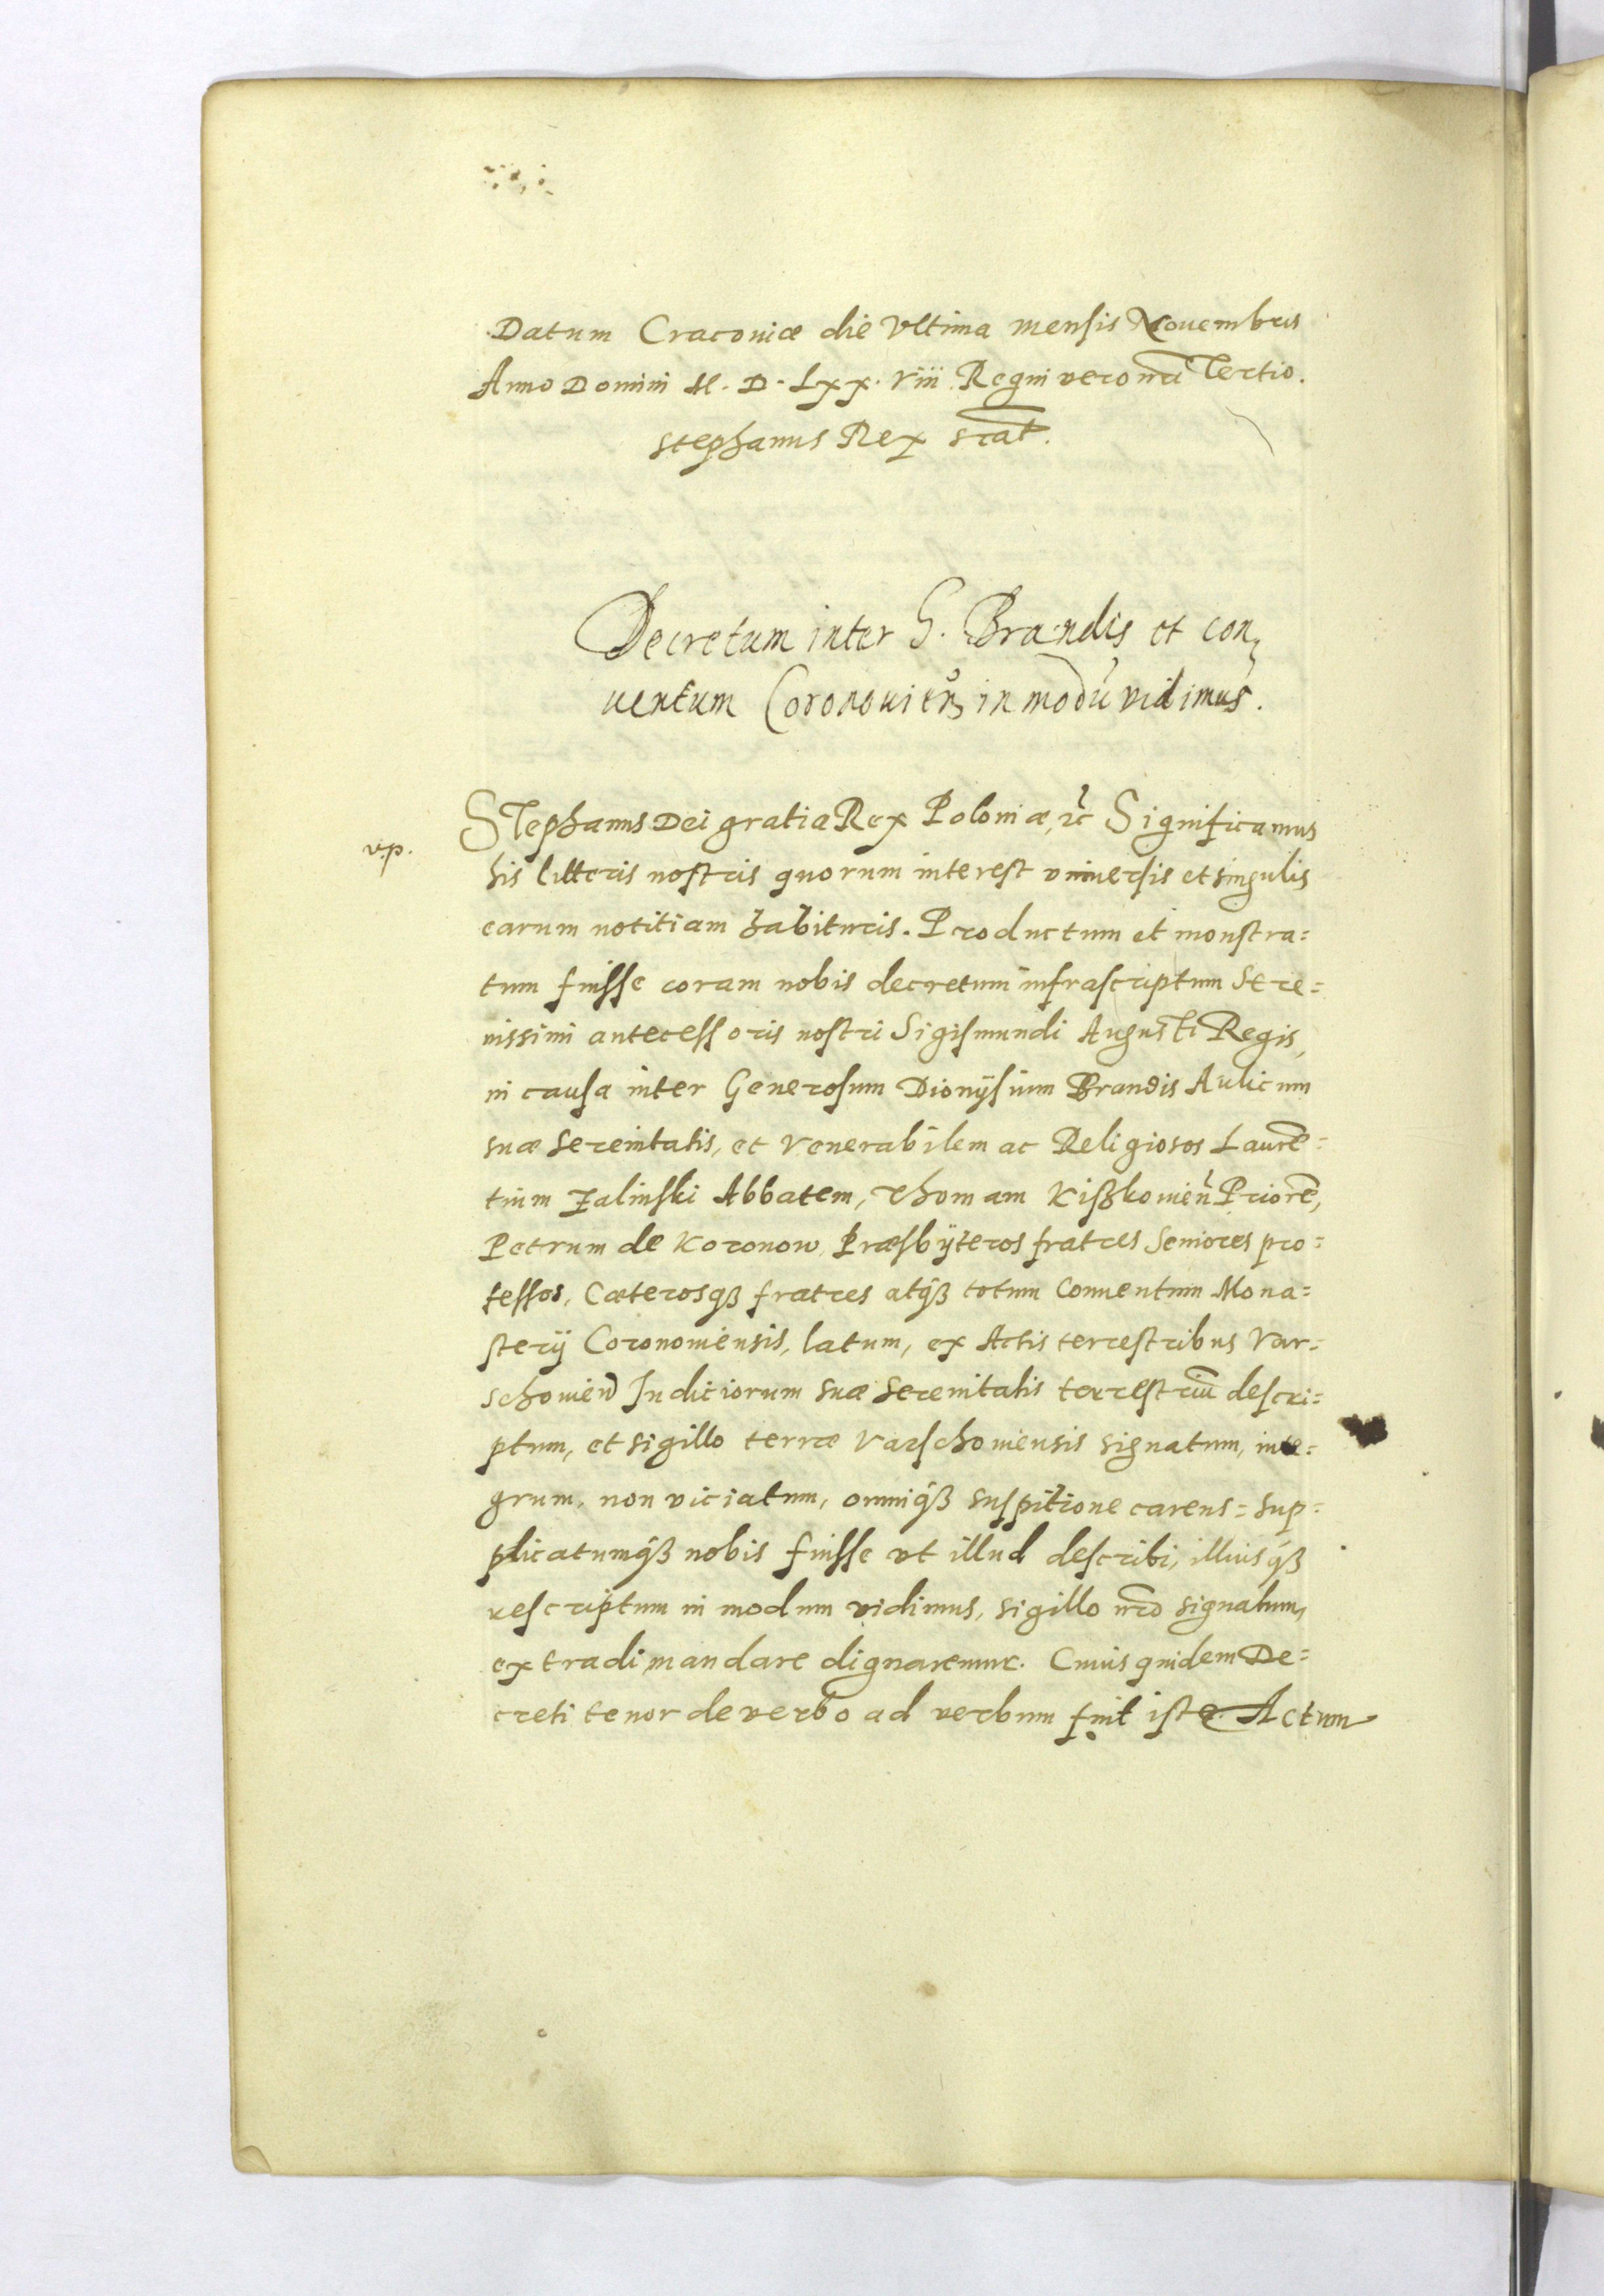 Datum Cracoviæ die Vltima mensis Nouembris
Anno Domini M. D. Lxx. Viii Regni vero nrī Tertio.
Stephanus Rex sct̄.
Decretum inter G. Brandis et con,
uentum Coronouien̄ in modū vidimus.
v.p.
Stephanus Dei gratia Rex Poloniæ, ꝛc Significamus
his litteris nostris quorum interest vniuersis et singulis
earum notitiam habituris. Productum et monstra=
tum fuisse coram nobis decretum infrascriptum Sere=
nissimi antecessoris nostri Sigismundi Augusti Regis,
in causa inter Generosum Dionÿsium Brandis Aulicum
suæ Serenitatis, et Venerabilem ac Religiosos Laurē=
tium Zalinski Abbatem, Thomam Kißkouien̄ Priorē,
Petrum de Koronow Præsbÿteros fratres Seniores pro=
fessos, Cæterosqꝫ fratres atqꝫ totum Conuentum Mona=
sterÿ Coronouiensis, latum, ex Actis terrestribus Var=
schouien̄ Iudiciorum suæ Serenitatis terrestriū descri=
ptum, et sigillo terræ Varschouiensis signatum, inte=
grum, non viciatum, omniqꝫ suspitione carens= Sup=
plicatumqꝫ nobis fuisse vt illud describi, illiusqꝫ
rescriptum in modum vidimus, sigillo nr̄o signatum,
extradi mandare dignaremur. Cuius quidem De=
creti tenor de verbo ad verbum fuit iste. Actum